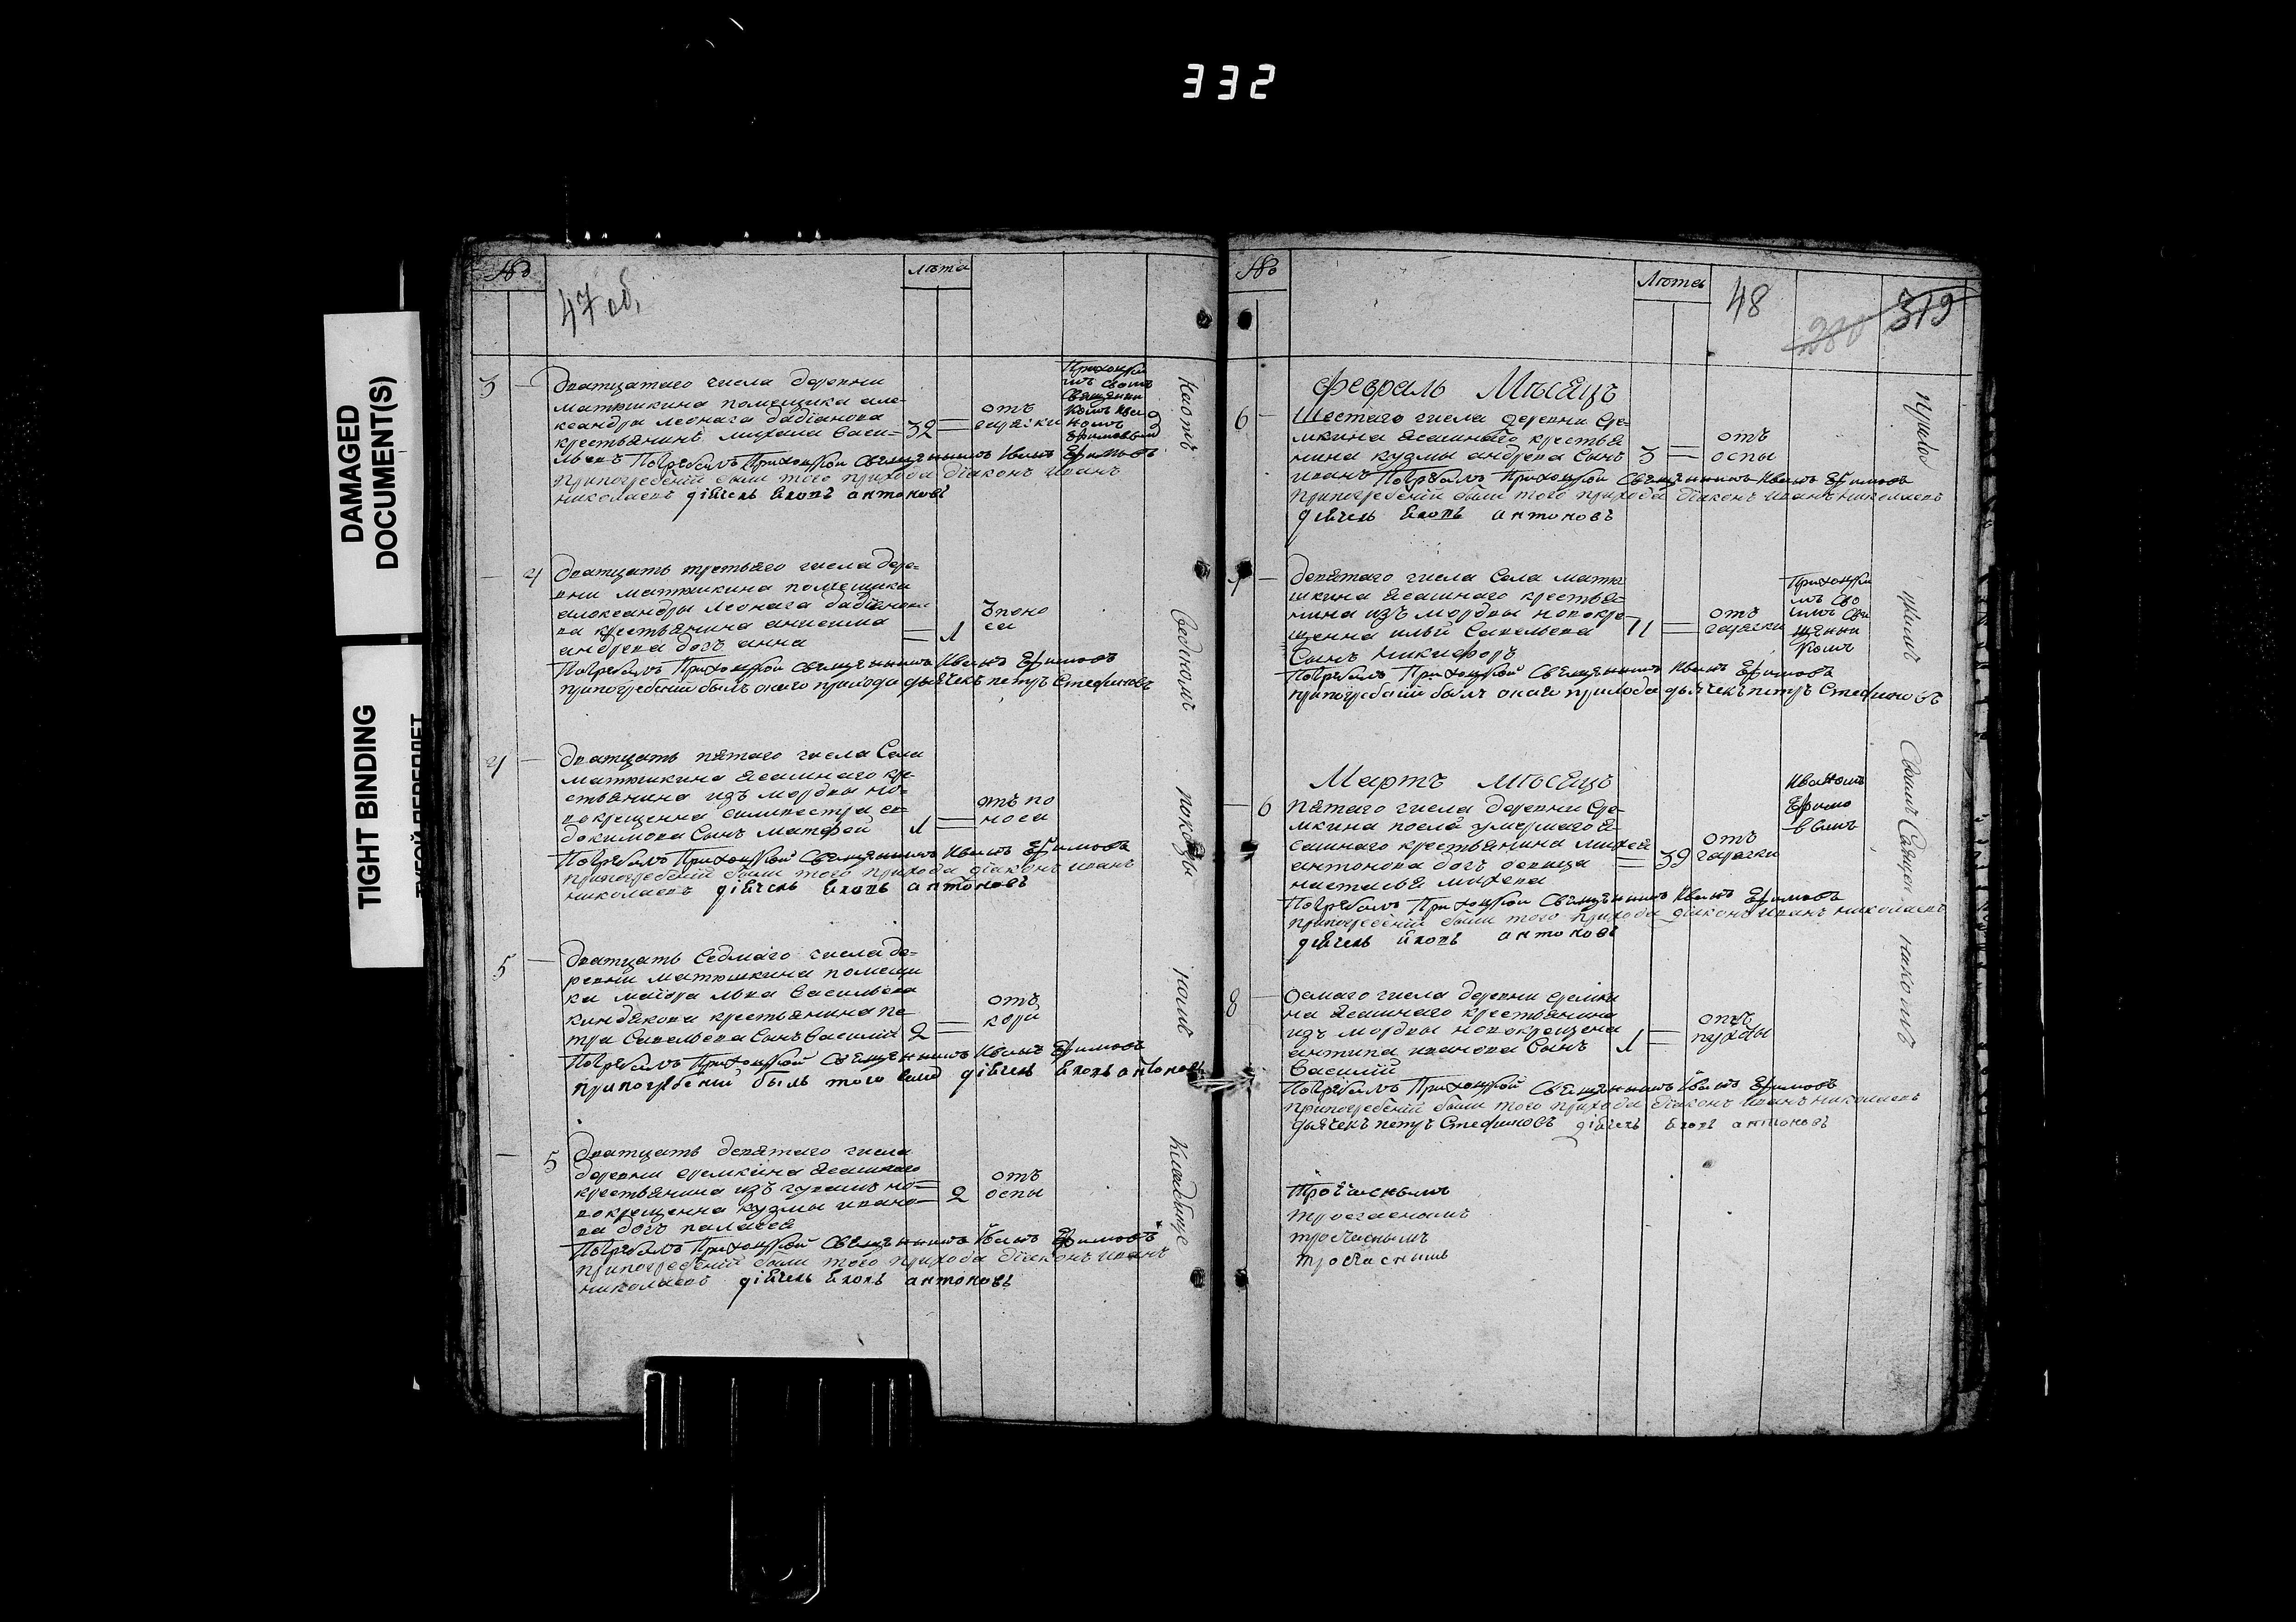 332
DAMAGED
DOCUMENT(S)
TIGHT BINDING
ТУГОЙ ПЕРЕПЛЕТ
№
лѣта
47 об.
3
дватцатаго числа деревни
матюшкина помещика але-
ксандра леонаГа дадіанова
крестьянинъ михаила васи-
льевъ
32
отъ
гарячки
Приходски
мъ своимъ
Священни
комъ Ива
номъ
Ефимовым
Погребалъ Приходской Священникъ Иванъ Ефимовъ
припогребеніи были того прихода діаконъ иванъ
николаевъ діячекъ яковъ антоновъ
4
дватцать третьяго числа дере-
вни матюшкина помещика
александры леонаГа дадіанова
крестьянина анисима
андрева дочь анна
1
Споно
са
Погребалъ Приходской Священникъ Иванъ Ефимовъ
припогребеніи былъ онаго прихода дьячекъ петръ Стефановъ
4
дватцать пятаго числа Села
матюшкина ясашнаго кре-
стьянина изъ мордвы но-
вокрещенна силивестра ев-
докимова Сынъ матфей
1
отъ по
носа
Погребалъ Приходской Священникъ Иванъ Ефимовъ
припогребеніи были того прихода діаконъ иванъ
николаевъ діячекъ яковъ антоновъ
5
дватцать Седмаго числа де-
ревни матюшкина помещи
ка маіора льва Васильева
киндякова крестьянина пе
тра Савельева Сынъ Василий
2
отъ
кори
Погребалъ Приходской Священникъ Иванъ Ефимовъ
припогребеніи былъ того села діячекъ яковъ антоновъ
5
дватцать девятаго числа
деревни еремкина ясашнаго
крестьянина изъ чувашъ но-
вокрещенна кузмы ивано-
ва дочь палагея
2
отъ
оспы
Погребалъ Приходской Священникъ Иванъ Ефимовъ
припогребеніи были того прихода діаконъ иванъ
николаевъ діячекъ яковъ антоновъ
На отъ
веденомъ
кладбище
№
Лѣта
48
319
Февраль Мѣсяцъ
6
Шестаго числа деревни Ере-
мкина ясашнаго крестья
нина кузмы андрева Сынъ
иванъ
3
отъ
оспы
Погребалъ Приходской Священникъ Иванъ Ефимовъ
припогребеніи были того прихода діаконъ иванъ николаевъ
діячекъ яковъ антоновъ
7
девятаго числа Села матю
шкина ясашнаго крестья-
нина изъ мордвы новокре
щенна ильи Савельева
Сынъ Никифоръ
71
отъ
гарячки
Приходски
мъ Сво
имъ Свя
щенни
комъ
Погребалъ Приходской Священникъ Иванъ Ефимовъ
припогребеніи былъ онаго прихода дьячекъ петръ Стефановъ
Мартъ мѣсяцъ
6
пятаго числа деревни Ере-
мкина после умершаго я-
сашнаго крестьянина михей
антонова дочь девица
настасья михева
39
отъ
гарячки
Иваномъ
Ефимо
вымъ
Погребалъ Приходской Священникъ Иванъ Ефимовъ
припогребеніи были того прихода діаконъ иванъ николаевъ
діячекъ яковъ антоновъ
8
Осмаго числа деревни еремки
на ясашнаго крестьянина
изъ мордвы новокрещена
антипа иванова Сынъ
Василий
1
отъ
Погребалъ Приходской Священникъ Иванъ Ефимовъ
припогребеніи были того прихода діаконъ иванъ николаевъ
дьячекъ петръ Стефановъ діячекъ яковъ антоновъ